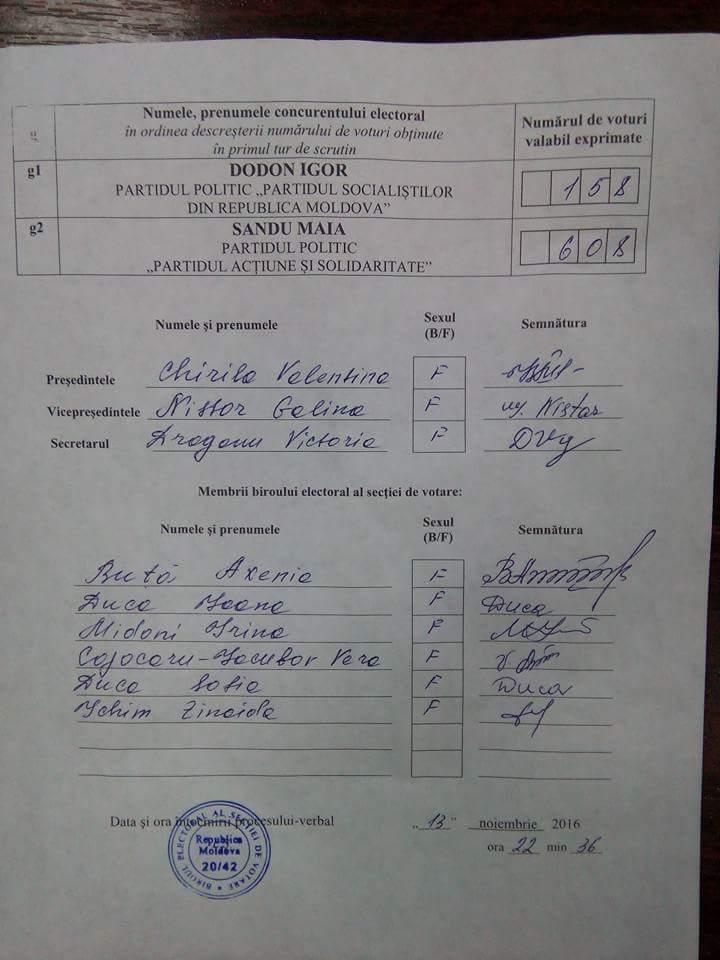 Numele, prenumele concurentului electoral
în ordinea descreșterii numărului de voturi obținute
în primul tur de scrutin
Numărul de voturi
valabil exprimate
g
g1
DODON IGOR
PARTIDUL POLITIC „PARTIDUL SOCIALIȘTILOR
DIN REPUBLICA MOLDOVA”
158
g2
SANDU MAIA
PARTIDUL POLITIC
„PARTIDUL ACȚIUNE ȘI SOLIDARITATE”
608
Numele și prenumele
Sexul
(B/F)
Semnătura
Președintele Chirila Valentina F
Vicepreședintele Nistor Galina F Nistor
Secretarul Draganu Victoria F
Membrii biroului electoral al secției de votare:
Numele și prenumele
Sexul
(B/F)
Semnătura
Buță Axenia F
Duca Ioana F Duca
Midoni Irina F
Cojocaru-Iacubov Vera F
Duca Sofia F Duca
Ichim Zinaida F
Data și ora întocmirii procesului-verbal „13” noiembrie 2016
ora 22 min 36
BIROUL ELECTORAL AL SECȚIEI DE VOTARE
Republica
Moldova
20/42